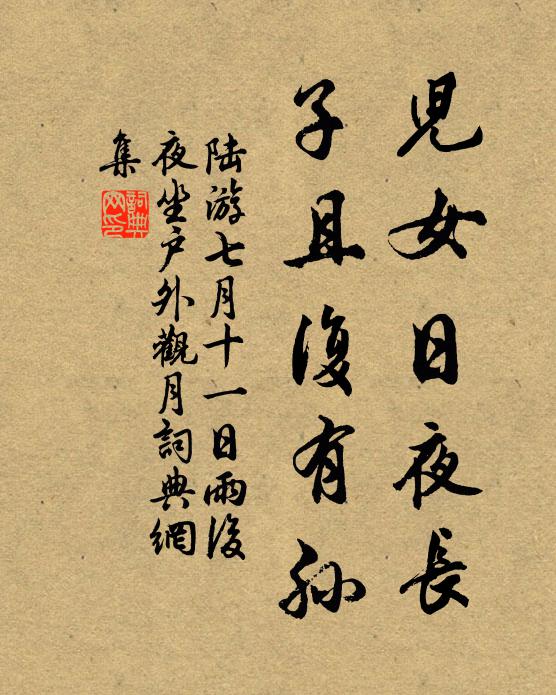 兒女日夜長
子且復有孫
陸游七月十一日雨後
夜坐戶外觀月詞典網
集
詞典
网印